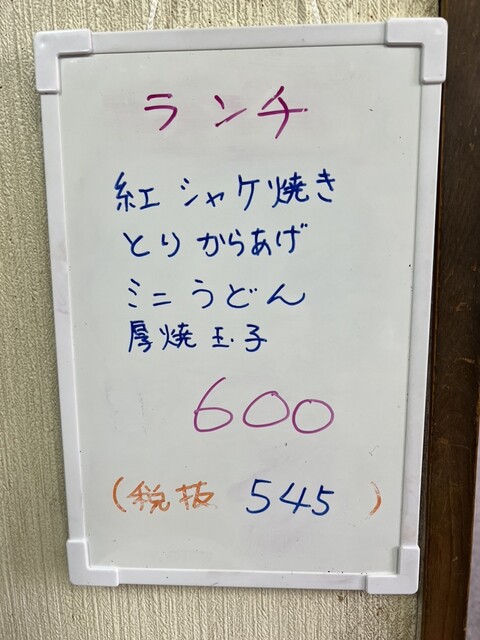 ランチ
紅シャケ焼き
とりからあげ
ミニうどん
厚焼玉子
600
(税抜 545)